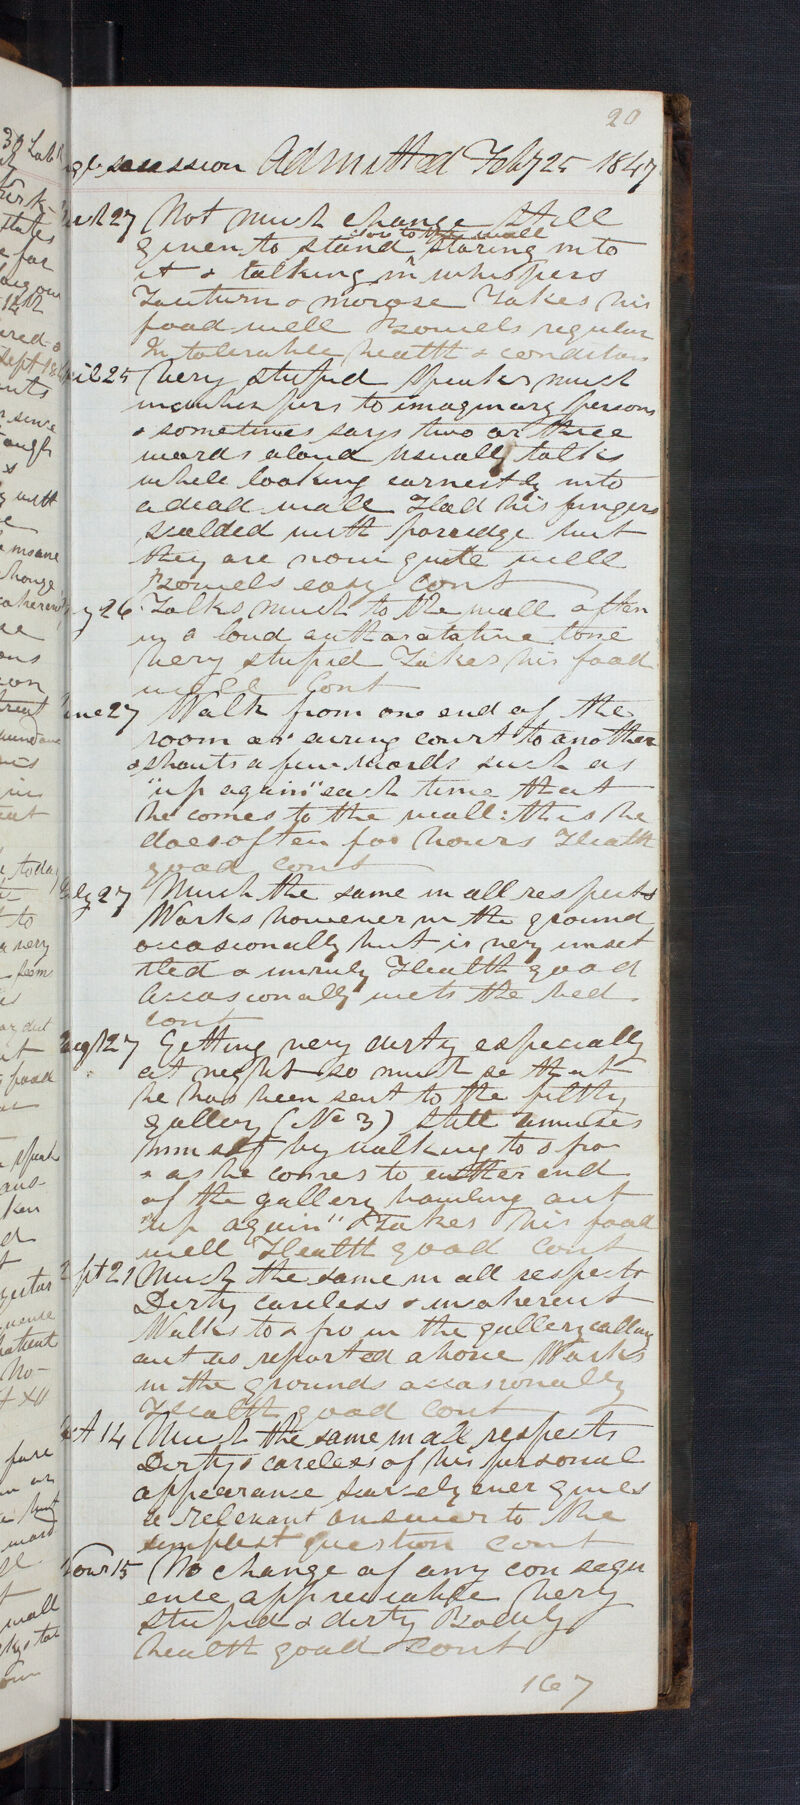 20
Admitted Feby 25 1847
27 Not much change Still
given to stand close to the wall staring into
it & talking in whispers
Taciturn & morose Takes his
food well Bowels regular
In tolerable health & condition
25 Very stupid Speaks much
in whispers to imaginary persons
& sometimes says two or three
words aloud Usually talks
while looking earnestly into
a dead wall Had his fingers
scalded with porridge but
they are now quite well
Bowels easy Cont
26 Talks much to the wall often
in a loud authoratative tone
Very stupid Takes his food
well Cont
June 27 Walk from one end of the
room or airing court to another
& shouts a few words such as
"up again" each time that
he comes to the wall: this he
does often for hours Health
good Cont
July 27 Much the same in all respects
Works however in the ground
occasionally but is very unset
tled & unruly Health good
Occasionally wets the bed
cont
Augt 27 Getting very dirty especially
at night so much so that
he has been sent to the filthy
gallery (No 3) Still amuses
himself by walking to & fro
& as he comes to either end
of the gallery bawling out
"up again" Takes his food
well Health good Cont
Sept 21 Much the same in all respects
Dirty careless & incoherent
Walks to & fro in the gallery calling
out as reported above Works
in the grounds occasionally
Health good Cont
Oct 14 Much the same in all respects
Dirty & careless of his personal
appearance Scarcely ever gives
a relevant answer to the
simplest question Cont
Novr 15 No change of any consequ
ence appreciable Very
Stupid & dirty Bodily
health good Cont
167